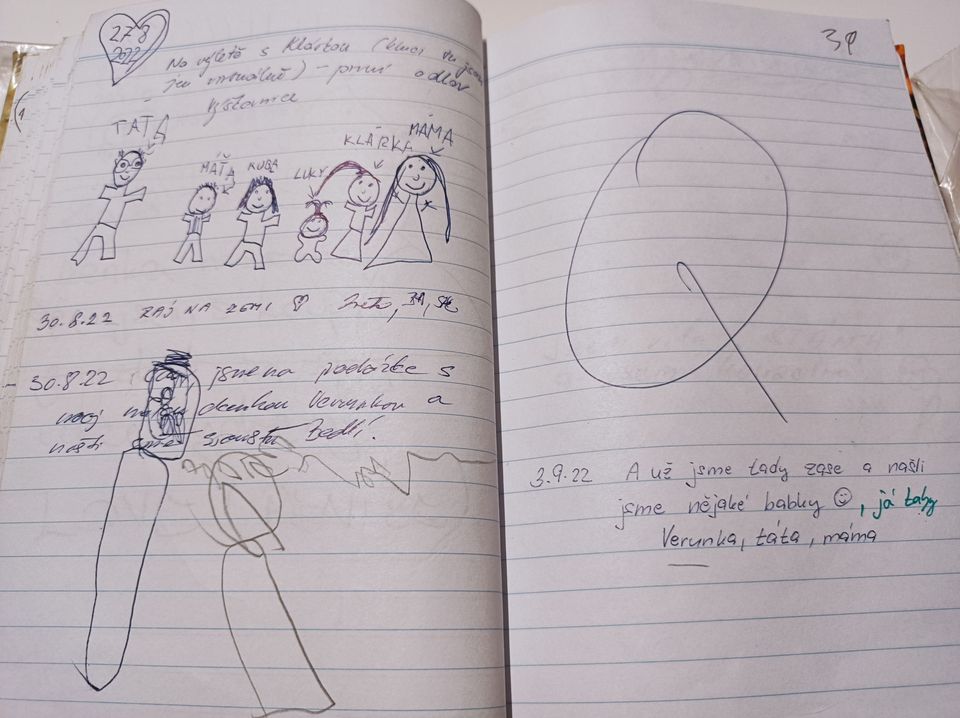 27 8
2022
Na výletě s Klárkou (kluci tu jsou
jen virtuálně) - první odlov
TÁTA
MÁŤA
KUBA
LUKY
KLÁRKA
MÁMA
30.8.22 ZAJ NA ZEMI ♡
30.8.22 jsme na podvízke s
mojí dcerkou Verunkou a
našli jsme spoustu Bedlí.
39
3.9.22 A už jsme tady zase a našli
jsme nějaké babky ☺, já taky
Verunka, táta, máma